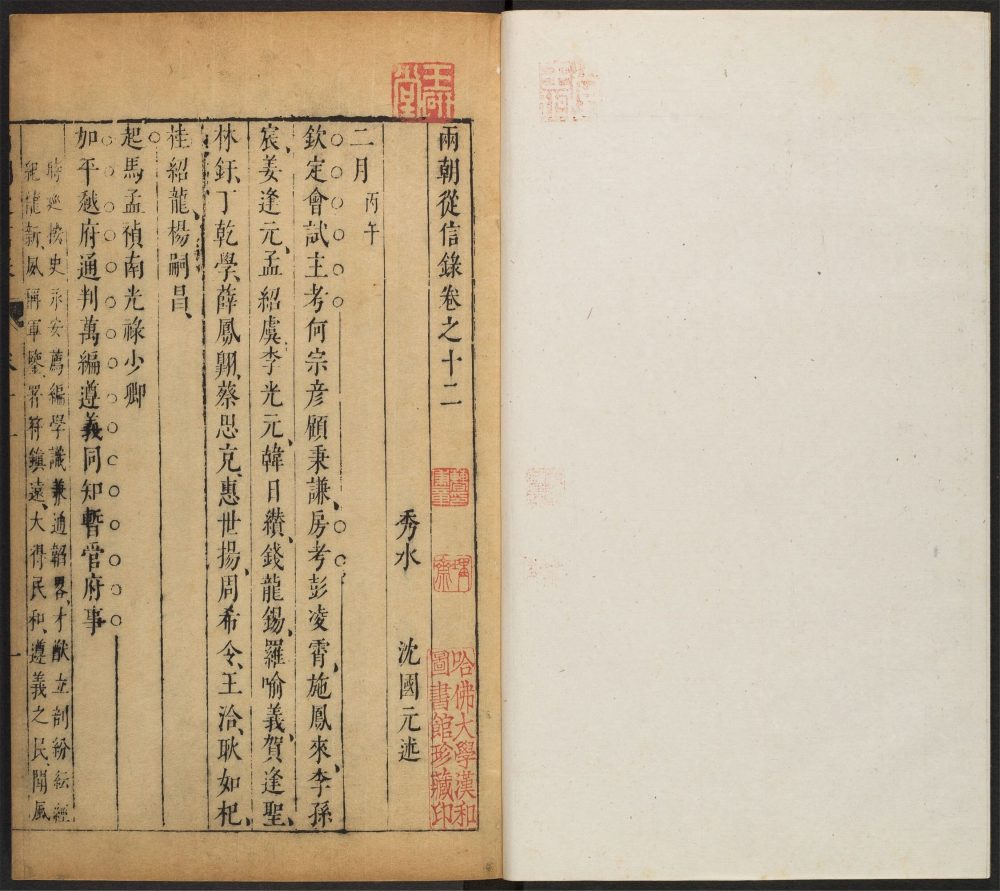 兩朝從信錄卷之十二
秀水 沈國元述
二月 丙午
欽定會試主考何宗彥顧秉謙、房考彭凌霄、施鳳來、李孫
宸、姜逢元、孟紹虞、李光元、韓日纘、錢龍錫、羅喻義、賀逢聖、
林釬、丁乾學、薛鳳翔、蔡思充、惠世揚、周希令、王洽、耿如杞、
袿紹龍、楊嗣昌、
起馬孟禎南光祿少卿
加平越府通判萬編遵義同知暫管府事
時廵按史永安薦編學識兼通韜畧、才猷立剖紛紜經
龍新、風稱軍鑒署符鎮遠、大得民和、遵義之民、聞風
一
哈佛大學漢和
圖書館珍藏印